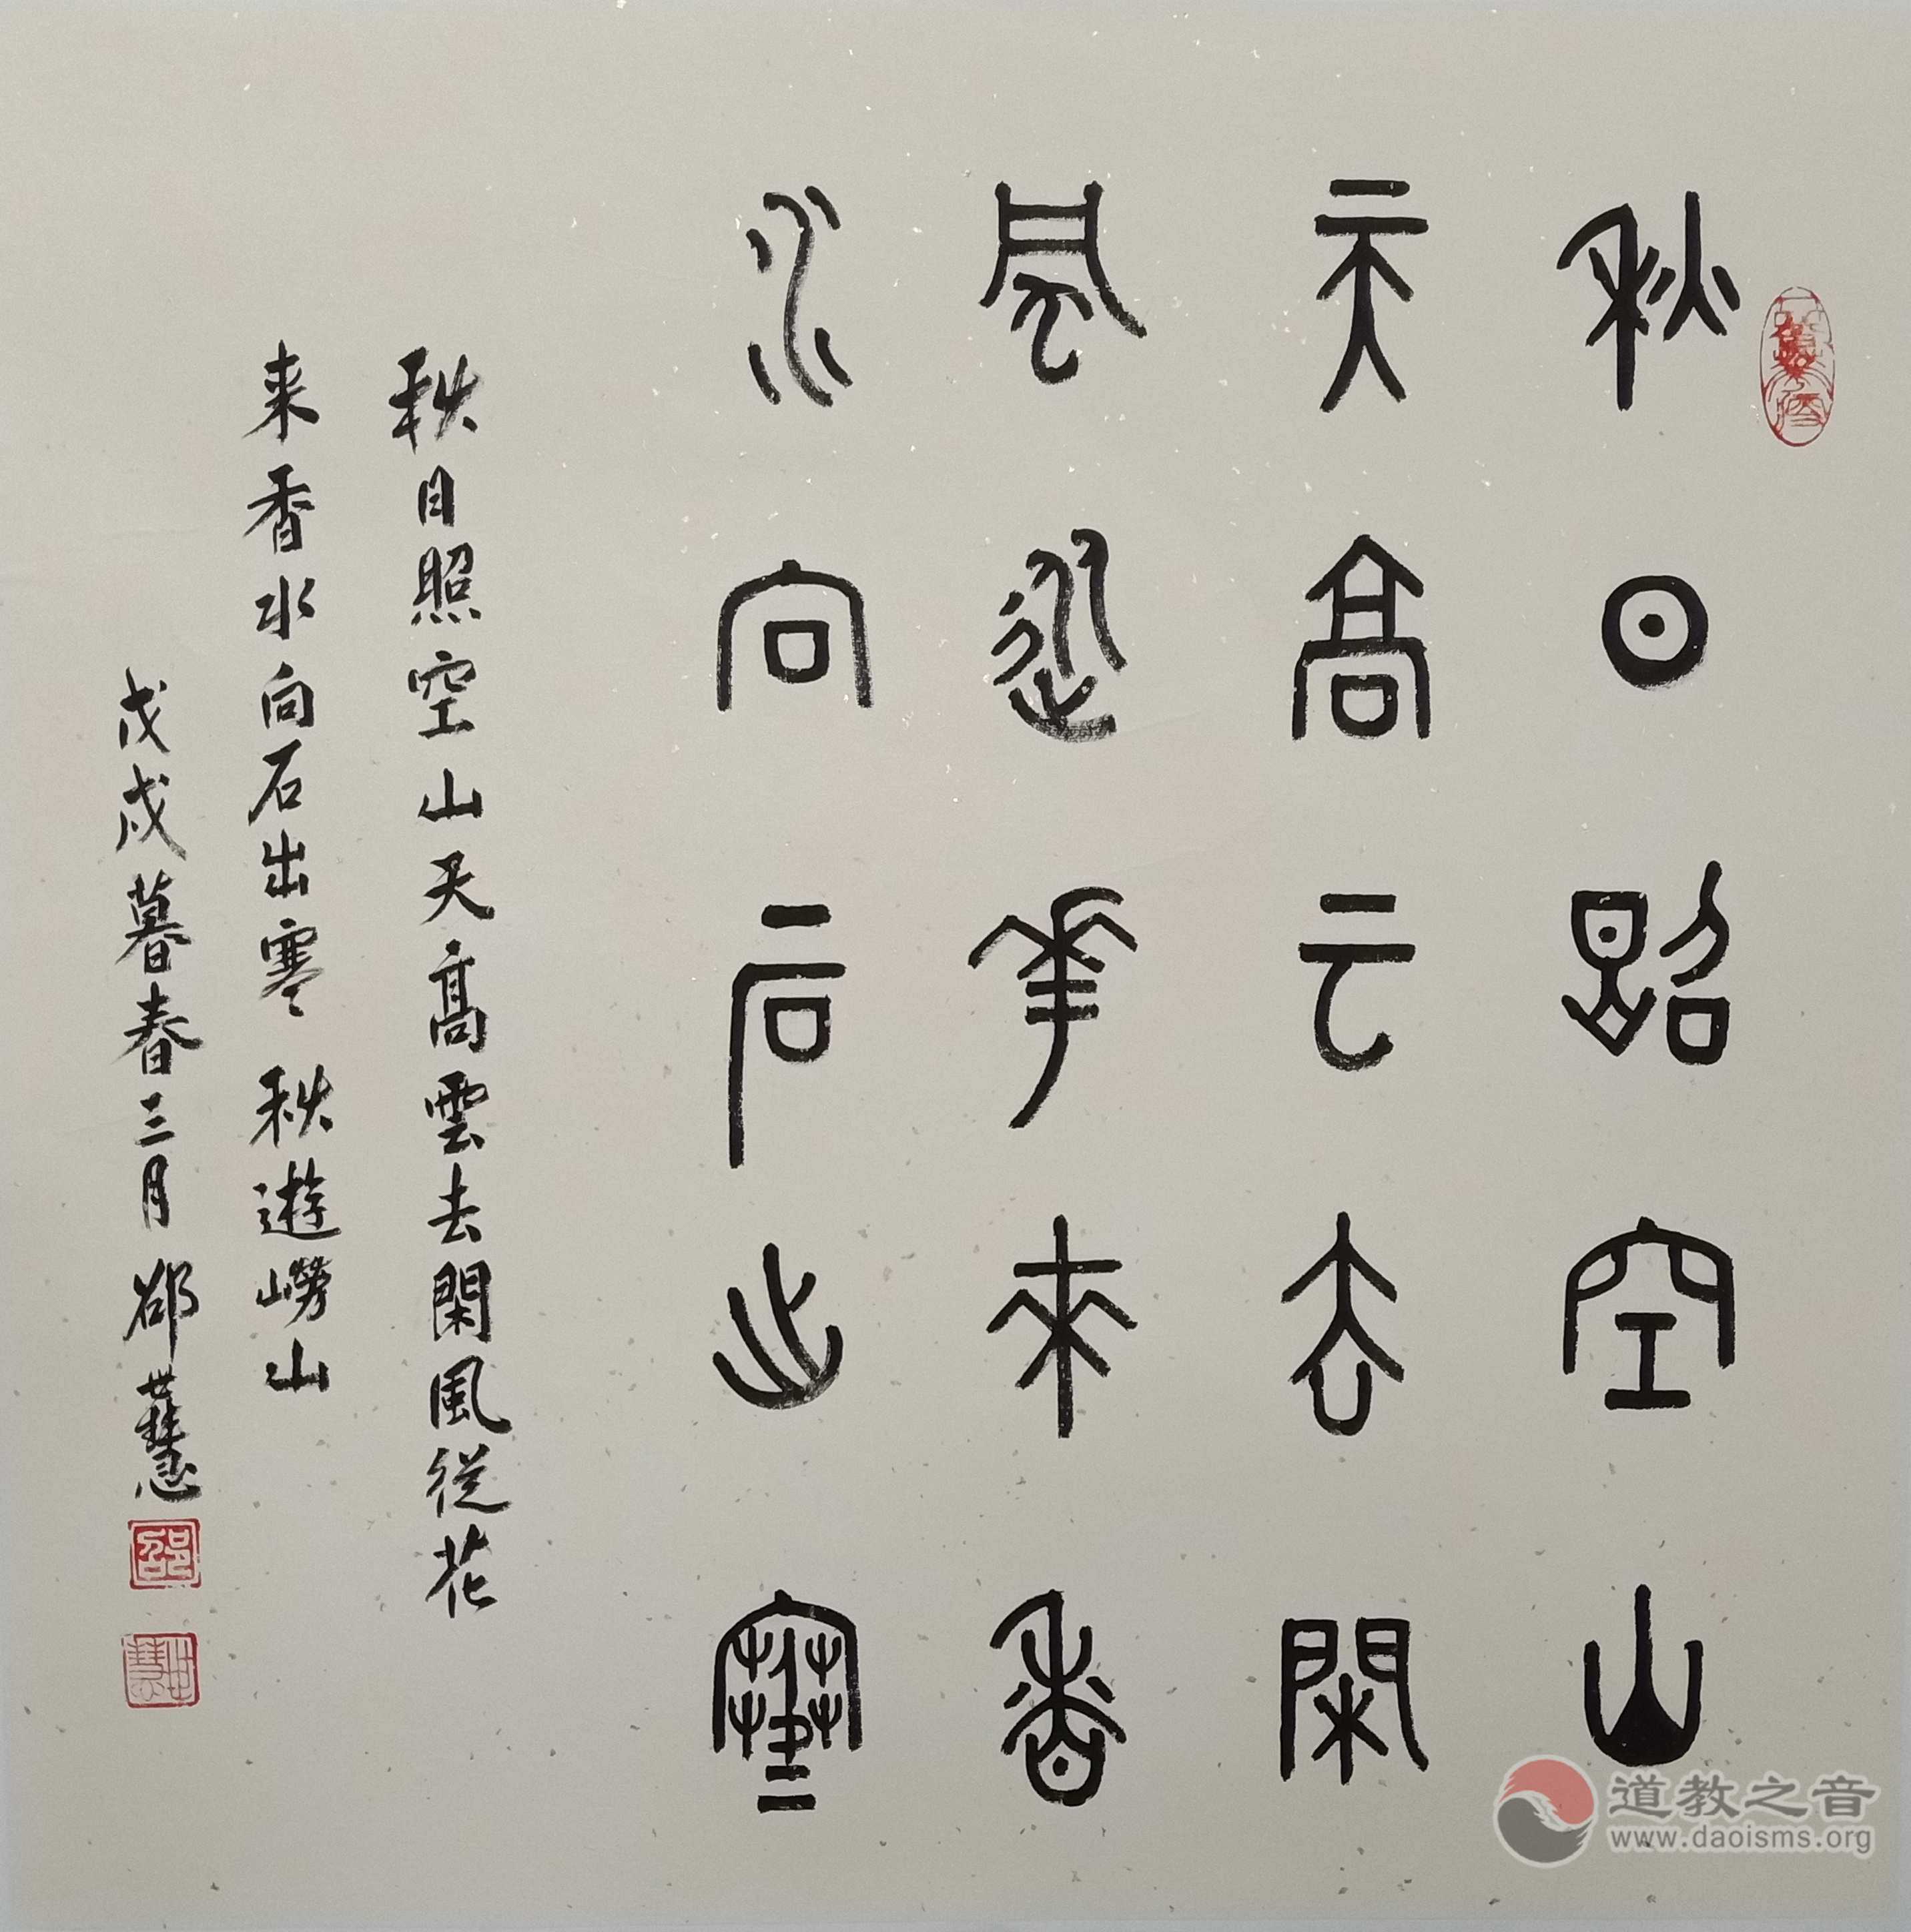 秋日照空山
天高云去閑
風從花來香
水向石出寒
秋日照空山天高雲去閑風從花
来香水向石出寒 秋遊嶗山
戊戌暮春三月邵世慧
邵
世慧
道教之音
www.daoisms.org